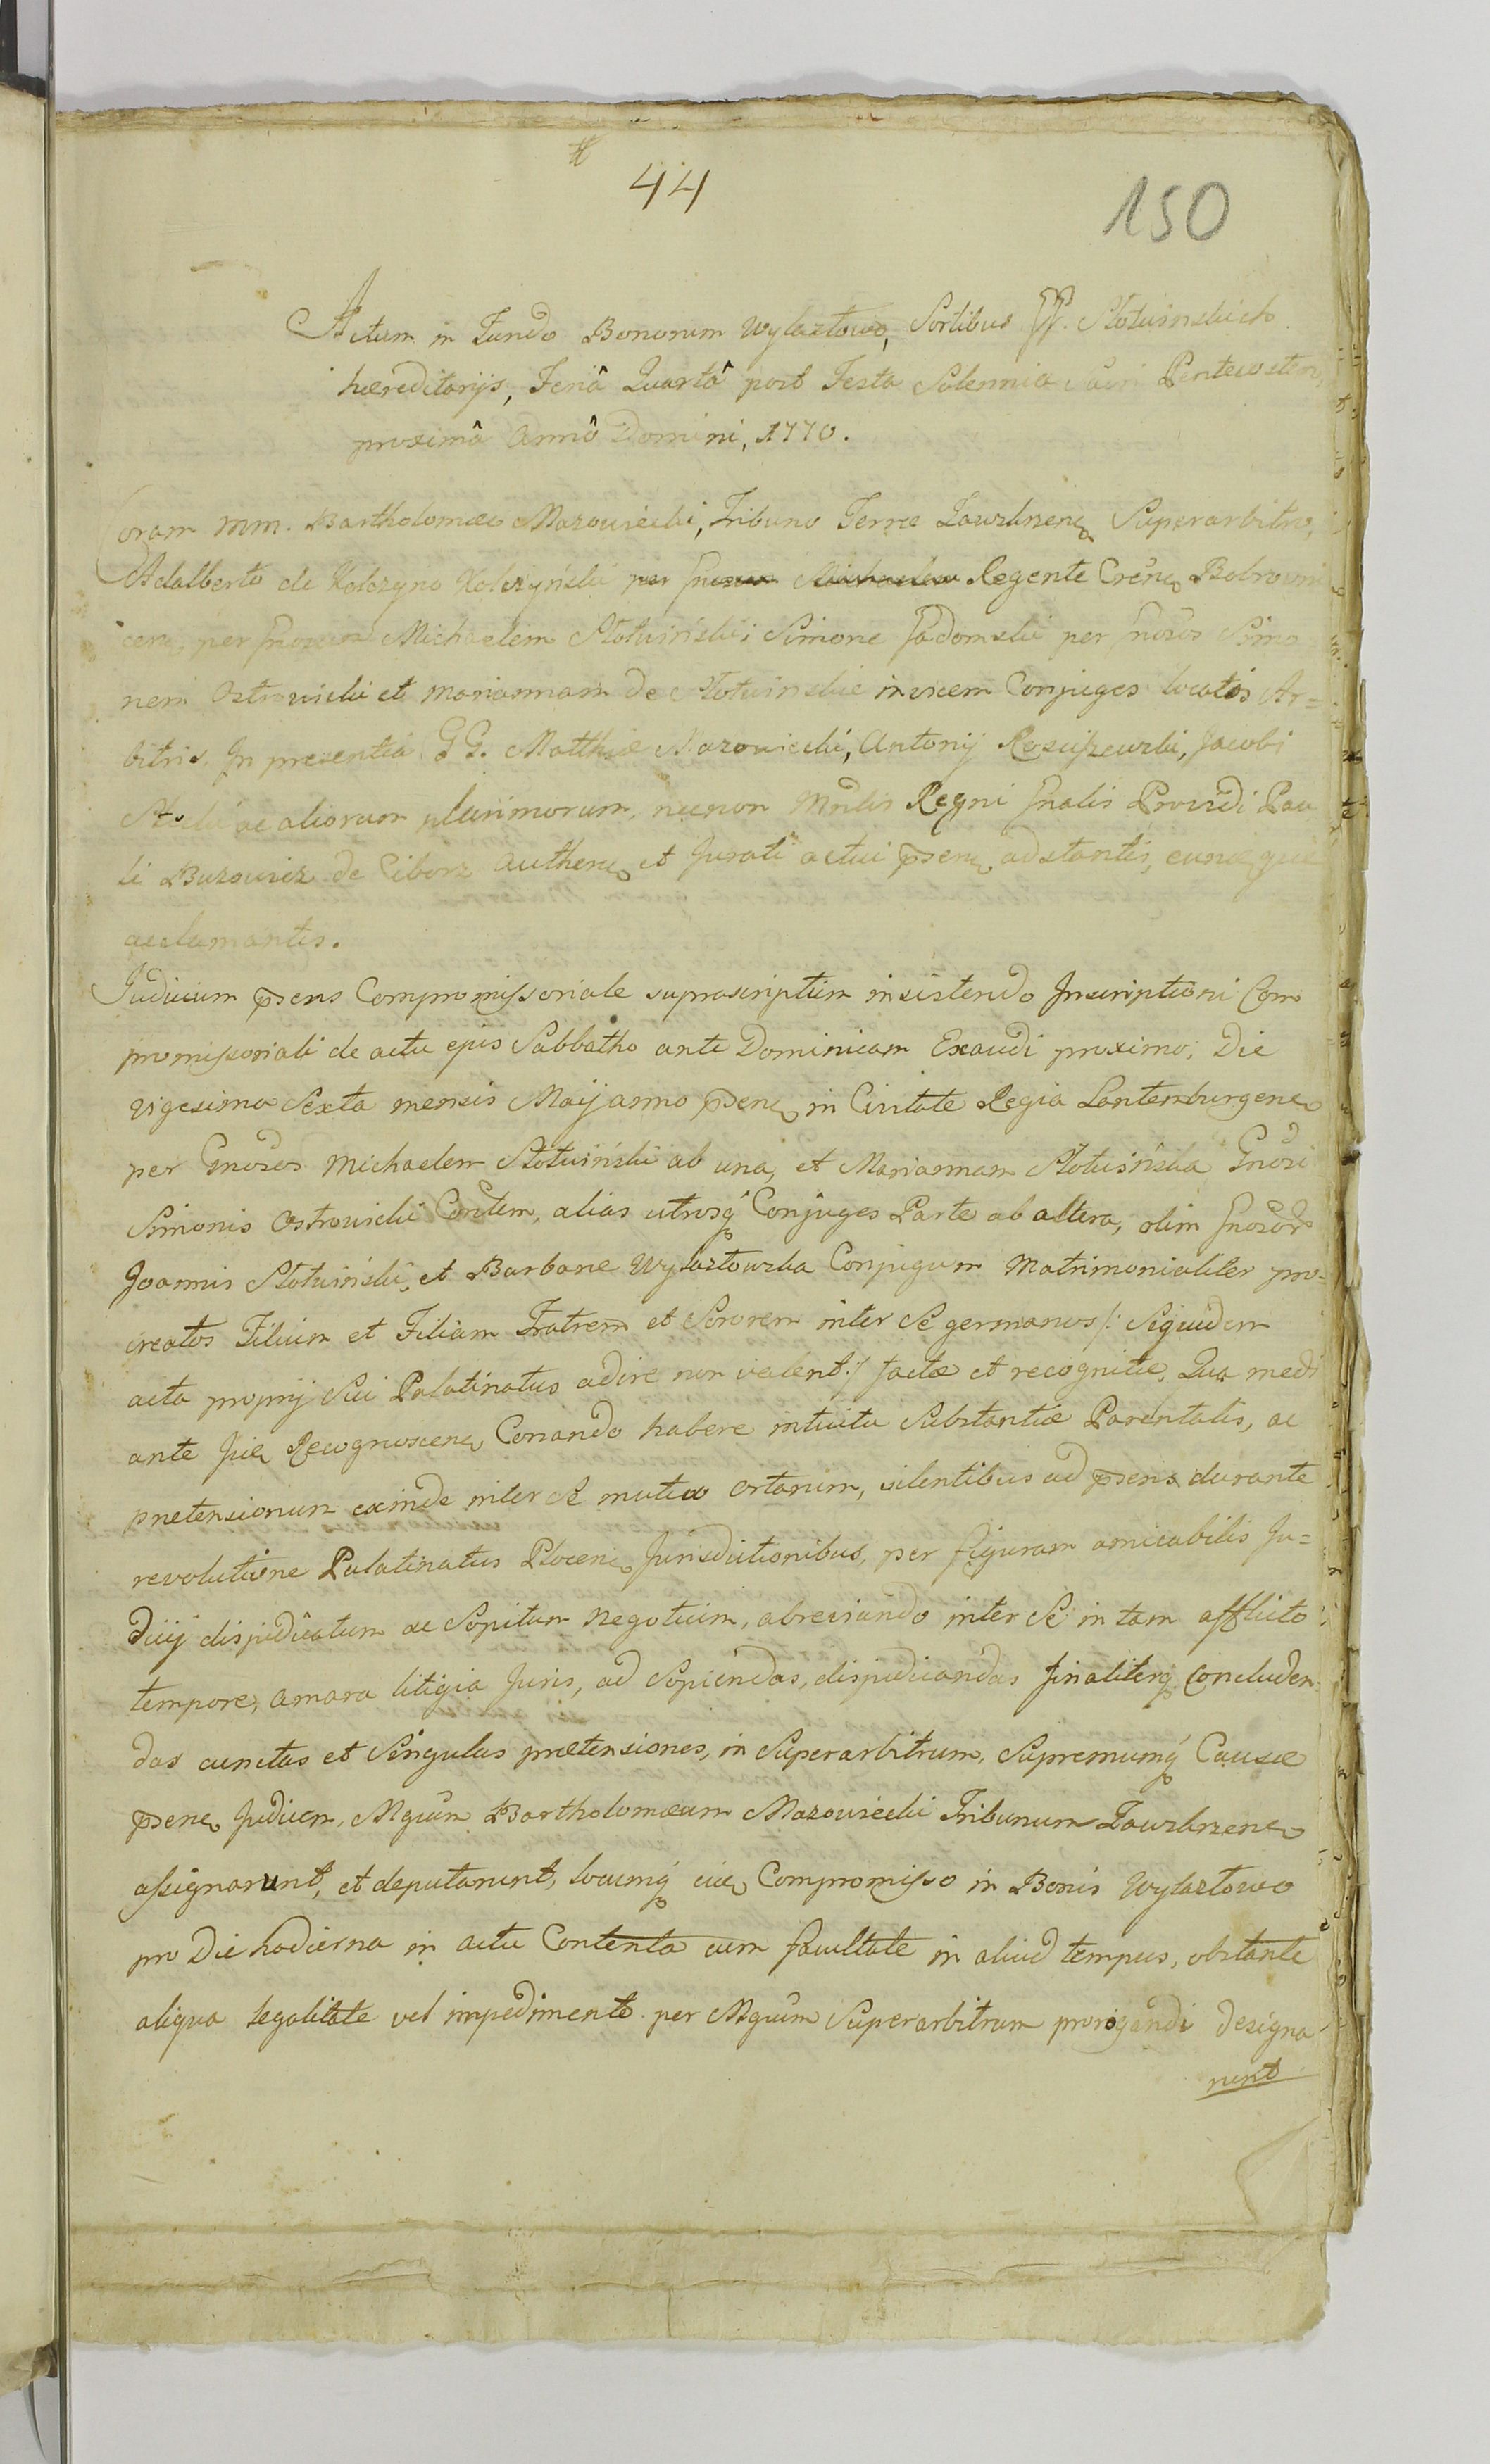 44
150
Actum in Fundo Bonorum Wylaztowo, Sortibus JJ. Słotwinskich
hæreditarijs, Feriâ Quartâ post Festa Solennia Sacri Pentecosten
proximâ Annô Domini, 1770.
Coram MM. Bartholomæo Mazowiecki, Tribuno Terræ Zawskrzen Superarbitro,
Adalberto de Kolczyno Kolczyński per Regente Cren Bobrowni
cen, per Michaelem Słotwiński; Simone Sadomski per Gnosos Simo
nem Ostrowicki et Mariannam de Słotwinskie invicem Conjuges locatis Ar=
bitris. In presentia GG. Matthiæ Mazowiecki, Antonij Rosciszewski, Jacobi
ac aliorum plurimorum, necnon Mrlis Regni Gnalis Providi Pau
li Buzowicz de Ciborz Authen et Jurati actui psen adstantis, eunq
acclamantis.
Judicium psens Compromissoriale suprascriptum insistendo Inscriptioni Com
promissoriali de actu ejus Sabbatho ante Dominicam Exaudi proximo, Die
vigesima Sexta mensis Maij anno psen in Civitate Regia Lautemburgen
per Gnosos Michaelem Słotwiński ab una, et Mariannam Słotwińska Gnosi
Simonis Ostrowicki Contem, alias utrosq Conjuges Parte ab altera, olim Gnosor
Joannis Słotwiński, et Barbaræ Wylaztowska Conjugum Matrimonialiter pro=
creatos Filium et Filiam Fratrem et Sororem inter Se germanos /: Siquidem
acta proprij Sui Palatinatus adire non valent :/ factæ et recognitæ, Qua medi
ante Recognoscen Conando habere intuitu Substantiæ Parentalis, ac
pretensionum exinde inter Se mutuo ortarum, silentibus ad psens durante
revolutione Palatinatus Plocen Jurisdictionibus, per figuram amicabilis Ju=
dicij disjudicatum ac Sopitum Negotium, abreviando inter Se in tam afflicto
tempore, amara litigia Juris, ad Sopiendas, disjudicandas finaliterq concluden
das cunctas et Singulas prætensiones, in Superarbitrum, Supremumq Causæ
psen Judicem, Mgcum Bartholomæum Mazowiecki Tribunum Zawskrzen
assignarunt, et deputarunt, locumq Compromisso in Bonis Wylaztowo
pro Die hodierna in actu Contenta cum facultate in aliud tempus, obstante
aliqua legalitate vel impedimento per Mgcum Superarbitrum prorogandi designa
runt